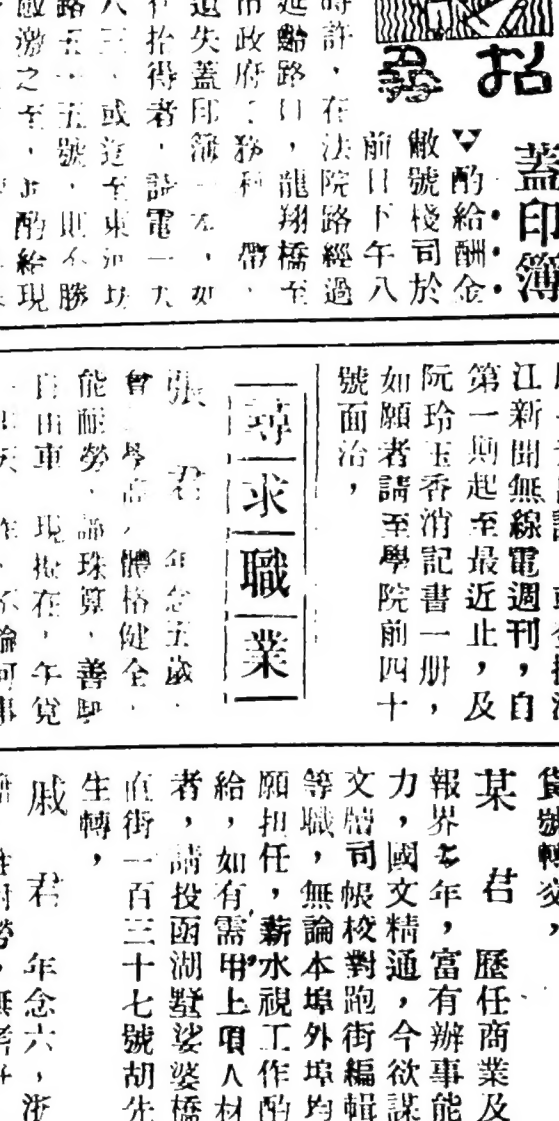 招尋
蓋印簿
▼酌給酬金
敝號棧司於
前日下午八
時許，在法院路經過
延齡路口，龍翔橋至
市政府
遺失蓋印簿一本，如
拾得者，請電一六
八三，或送至東
路五一五號，則不勝
感激之至，並酌給現
江新聞無線電週刊，自
第一期起至最近止，及
阮玲玉香消記書一册，
如願者請至學院前四十
號面洽，
尋求職業
張君 年念五歲，
體格健全，
能耐勞，諳珠算，善騎
自由車
貨號轉交，
某君 歷任商業及
報界七年，富有辦事能
力，國文精通，今欲謀
文牘司帳校對跑街編輯
等職，無論本埠外埠均
願担任，薪水視工作酌
給，如有需用上項人材
者，請投函湖墅娑婆橋
直街一百三十七號胡先
生轉，
戚君 年念六，浙